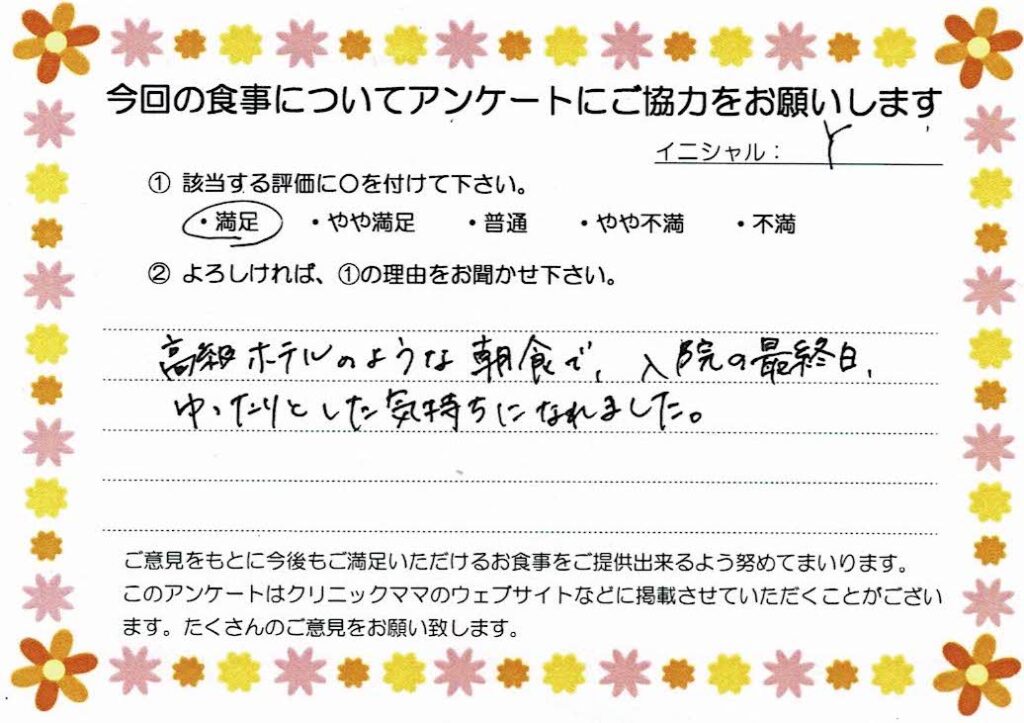 今回の食事についてアンケートにご協力をお願いします
イニシャル： Y
① 該当する評価に〇を付けて下さい。
・満足 ・やや満足 ・普通 ・やや不満 ・不満
② よろしければ、①の理由をお聞かせ下さい。
高級ホテルのような朝食で、入院の最終日、
ゆったりとした気持ちになれました。
ご意見をもとに今後もご満足いただけるお食事をご提供出来るよう努めてまいります。
このアンケートはクリニックママのウェブサイトなどに掲載させていただくことがござい
ます。たくさんのご意見をお願い致します。